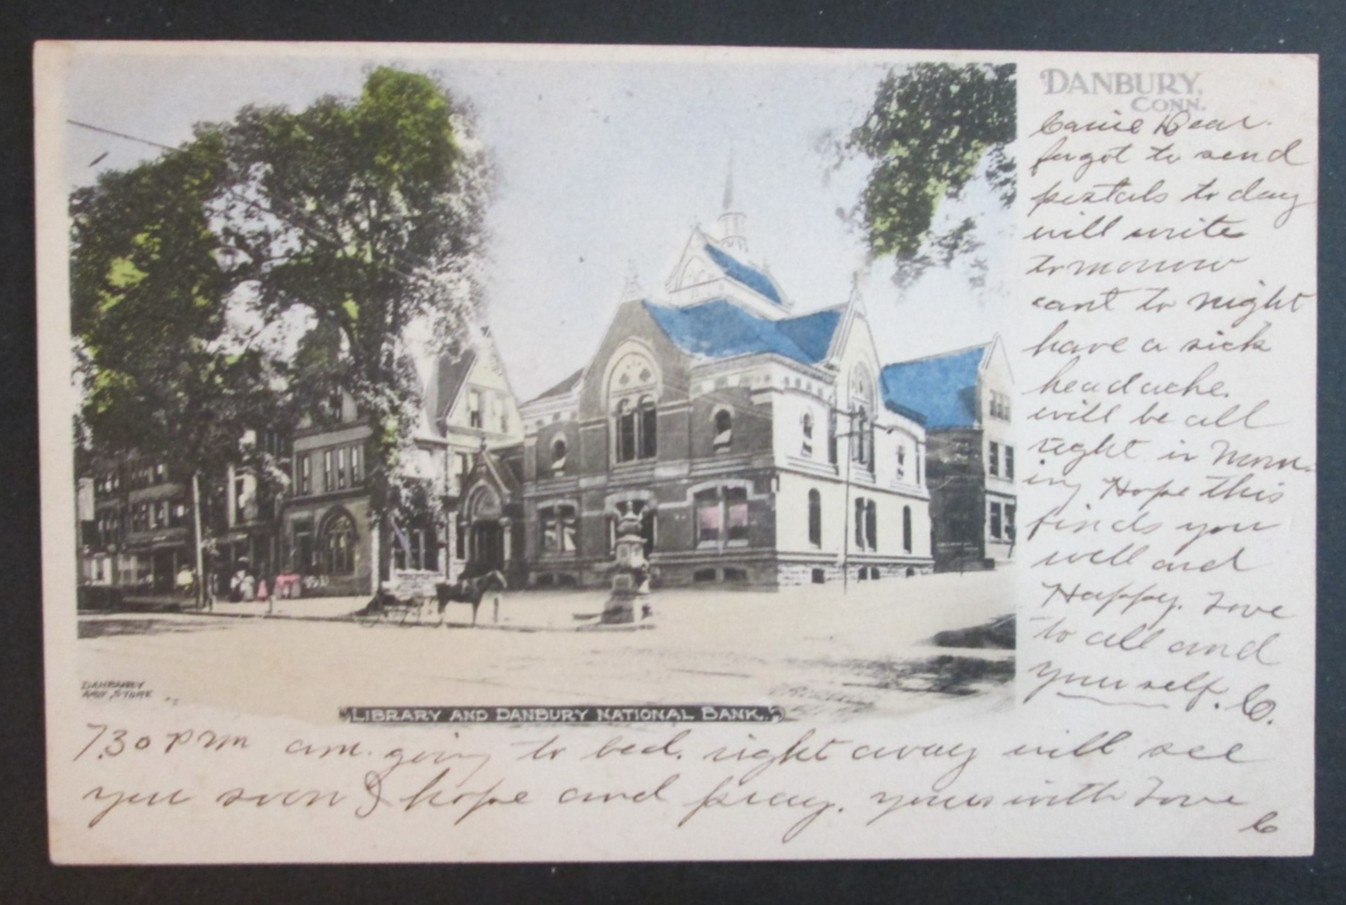 DANBURY,
CONN.
Carrie Dear.
forgot to send
postals to day
will write
tomorrow
cant to night
have a sick
headache.
will be all
right in Morn-
ing Hope this
finds you
well and
Happy. Love
to all and
your self. C.
DANBURY
ART STORE
LIBRARY AND DANBURY NATIONAL BANK.
7.30 P M am going to bed. right away will see
you soon I hope and pray. yours with Love
C